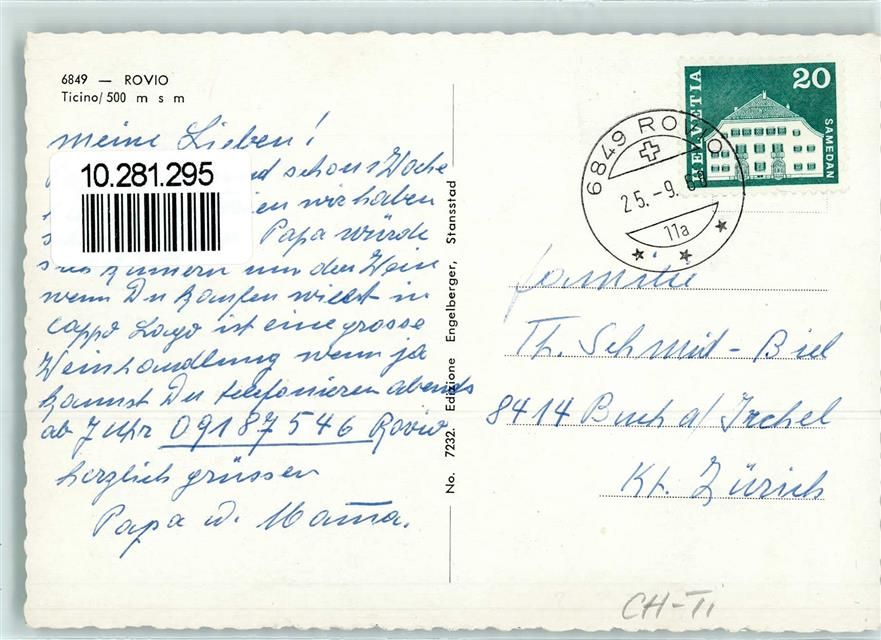 6849 — ROVIO
Ticino/500 m s m
meine Lieben!
schon 1 Woche
10.281.295
wir haben
Papa würde
um den Wein
wenn Du kaufen willst in
Cappo Lago ist eine grosse
Weinhandlung wenn ja
kannst Du telefonieren abends
ab 7 Uhr 091 87 546 Rovio
herzlich grüssen
Papa u. Mama.
No. 7232. Edizione Engelberger, Stansstad
HELVETIA
20
SAMEDAN
6849 ROVIO
25.-9.
11a
Familie
Th. Schmid-Biel
8414 Buch a/Irchel
Kt. Zürich
CH-TI